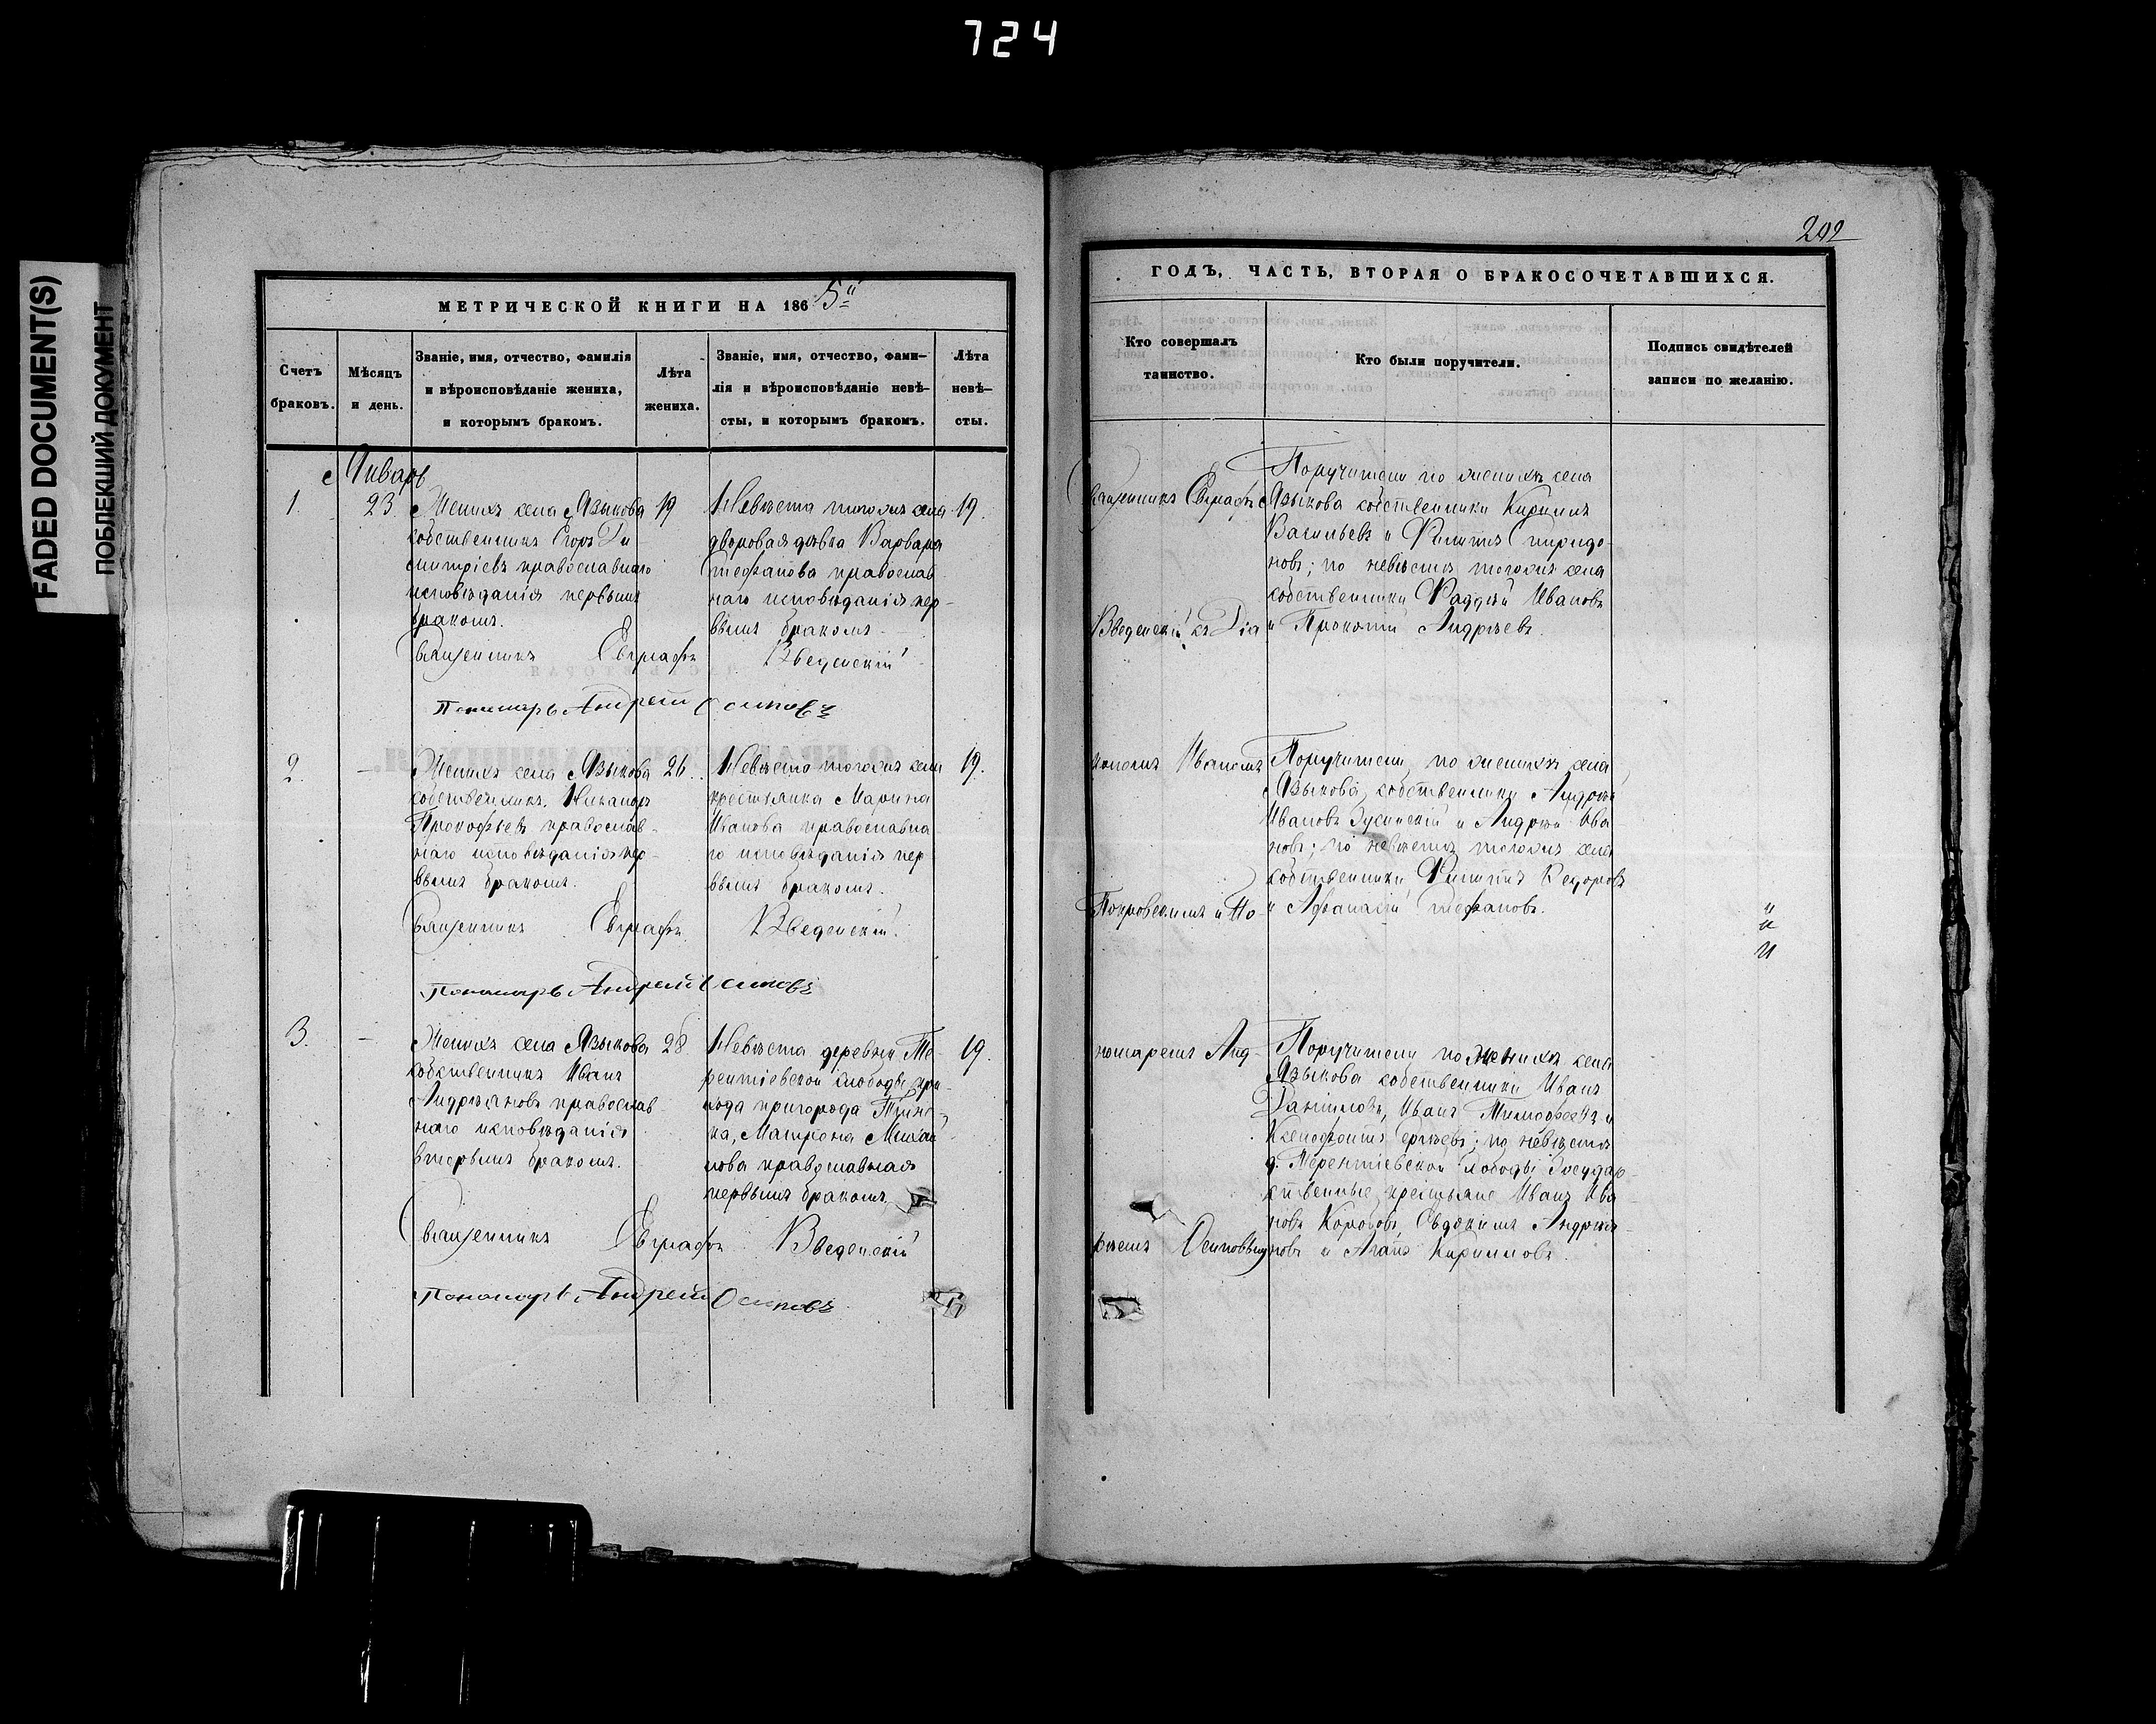 724
FADED DOCUMENT(S)
ПОБЛЕКШИЙ ДОКУМЕНТ
МЕТРИЧЕСКОЙ КНИГИ НА 1865й
Счетъ браковъ.
Мѣсяцъ и день.
Званіе, имя, отчество, фамилія
и вѣроисповѣданіе жениха,
и которымъ бракомъ.
Лѣта жениха.
Званіе, имя, отчество, фами–
лія и вѣроисповѣданіе невѣ–
сты, и которымъ бракомъ.
Лѣта
невѣ–
сты.
Январь
1.
23.
Женихъ села Языкова
собственникъ Егоръ Ди-
митріевъ православнаго
исповѣданія первымъ
бракомъ.
19
Невѣста тогожъ села
дворовая дѣвка Варвара
Стефанова православ-
наго исповѣданія пер-
вымъ бракомъ.
19.
Священникъ Евграфъ Введенскій
Пономарь Андрей Осиповъ
2.
—
Женихъ села Языкова
собственникъ Никаноръ
Прокофьевъ православ-
наго исповѣданія пер-
вымъ бракомъ.
26.
Невѣста тогожъ села
крестьянка Марина
Иванова православна-
го исповѣданія пер
вымъ бракомъ.
19.
Священникъ Евграфъ Введенскій.
Пономарь Андрей Осиповъ
3.
—
Женихъ села Языкова
собственникъ Иванъ
Андреяновъ православ-
наго исповѣданія
вторымъ бракомъ.
28
Невѣста деревни Те-
рентіевской слободы при-
хода пригорода
Матрона Михай-
лова православная
первымъ бракомъ
19.
Священникъ Евграфъ Введенскій
Пономарь Андрей Осиповъ
202
ГОДЪ, ЧАСТЬ, ВТОРАЯ О БРАКОСОЧЕТАВШИХСЯ.
Кто совершалъ
таинство.
Кто были поручители.
Подпись свидѣтелей
записи по желанію.
Священникъ Евграфъ
Введенскій съ Діа
кономъ Иваномъ
Покровскимъ и По-
номаремъ Анд-
реемъ Осиповымъ
Поручители по женихѣ села
Языкова собственники Кирилъ
Васильевъ и Филипъ Спиридо-
новъ; по невѣстѣ тогожъ села
собственники Фаддѣй Ивановъ
и Прокопій Андреевъ.
Поручители по женихѣ села
Языкова собственники Андрей
Ивановъ и Андрей Ива
новъ; по невѣстѣ тогожъ села
собственники Филипъ Ѳедоровъ
и Афанасій Стефановъ.
Поручители по женихѣ села
Языкова собственники Иванъ
Даниловъ, Иванъ Тимофеевъ и
Ксенофонтъ Сергѣевъ; по невѣстѣ
д. Терентіевской Слободы Государ-
ственные крестьяне Иванъ Ива
новъ Евдокимъ Андрея-
новъ и Кириловъ.